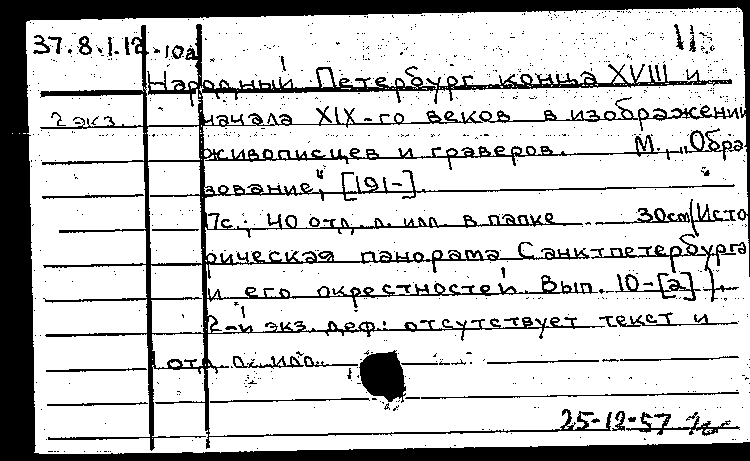 37.8.1.12-10а
Народный Петербург конца XVIII и
2 экз. начала XIX-го веков в изображении
живописцев и граверов. М., „Обра-
зование", [191-].
17с.; 40 отд. л. илл. в папке 30cm (Исто-
рическая панорама Санктпетербурга
и его окрестностей. Вып. 10-[а]).
2-й экз. деф.: отсутствует текст и
1 отд. л. илл.
25-12-57